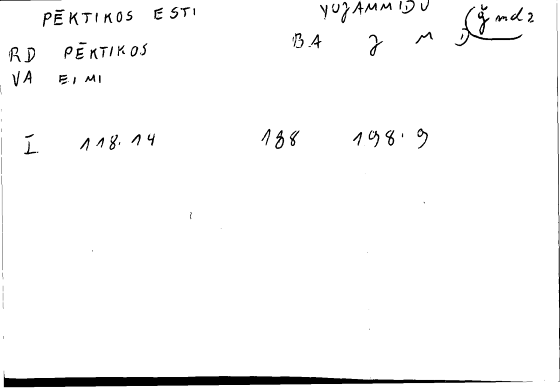 PĒKTIKOS ESTI YUJAMMIDU
(ǧmd2
RD PĒKTIKOS BA J M D
VA EIMI
I 118.14 188 198.9